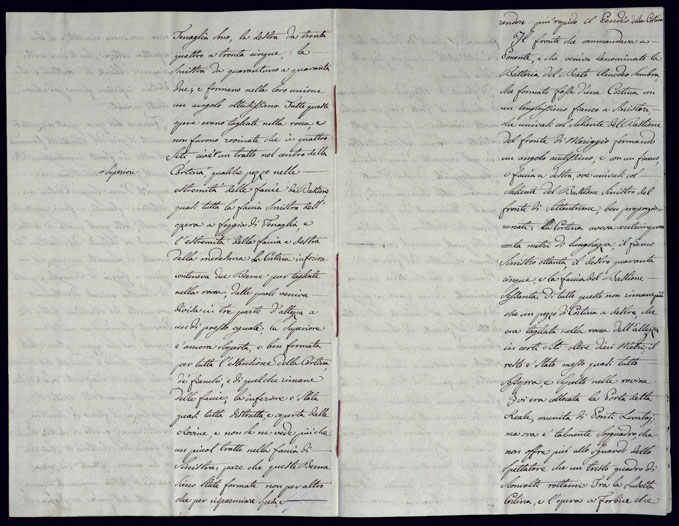 Tenaglia sino, la destra da trenta
quattro a trenta cinque la
sinistra da quarantuno a quaranta
due; e formano nella loro unione
un angolo ottusissimo Tutte queste
opere erano tagliate nella rocca, e
non furono rovinate che in quattro
siti, cioè un tratto nel centro della
Cortina, qualche pezzo nelle
estremità delle faccie
quasi tutta la faccia sinistra dell'
opera a foggia di Tenaglia e
l'estremità della faccia a destra
della medesima La Cortina inferiore
conteneva due Berme pur tagliate
nella rocca, dalle quali veniva
divisa in tre parti d'altezza a
un di presso eguale; la superiore
è ancora scoperta, e ben formata
per tutta l'estensione della Cortina
de' fianchi, e di quel che rimane
delle faccie; la inferiore è stata
quasi tutta distrutta e coperta dalle
rovine, e non che ne vede più che
un picciol tratto nella faccia di
sinistra; pare che queste Berme
sieno state formate non per altro
che per risparmiare
Superiore
rendere più rapido il Pendio della Cortina
Il fronte che commandava a
Ponente, e che veniva denominato la
Batteria del Beato Amedeo sembra
che formato fosse d'una Cortina con
un lunghissimo fianco a sinistra
che univasi col saliente del Bastione
del fronte di Mezzogiò formando
un angolo acutissimo, e con un fianco
e faccia a destra ove univasi col
saliente del Bastione sinistro del
fronte di Settentrione, ben proporzio=
=nati; la Cortina aveva
=ta metri di lunghezza; il fianco
sinistro ottanta il destro quaranta
cinque; e la faccia del Bastione
sessanta. Di tutto questo non rimane più
che un pezzo di Cortina a destra che
era tagliata nella rocca dell'altezza
in certi siti oltre dieci Metri; il
resto è stato messo quasi tutto
sossopra e sepolto nelle rovine
Ivi era collocata la Porta detta
Reale, munita di Ponti Levatoj;
ma ora è talmente che
non offre più allo sguardo dello
spettatore che un tristo quadro di
sconvolti rottami Tra la sudetta
Cortina, e l'opera a forbice che